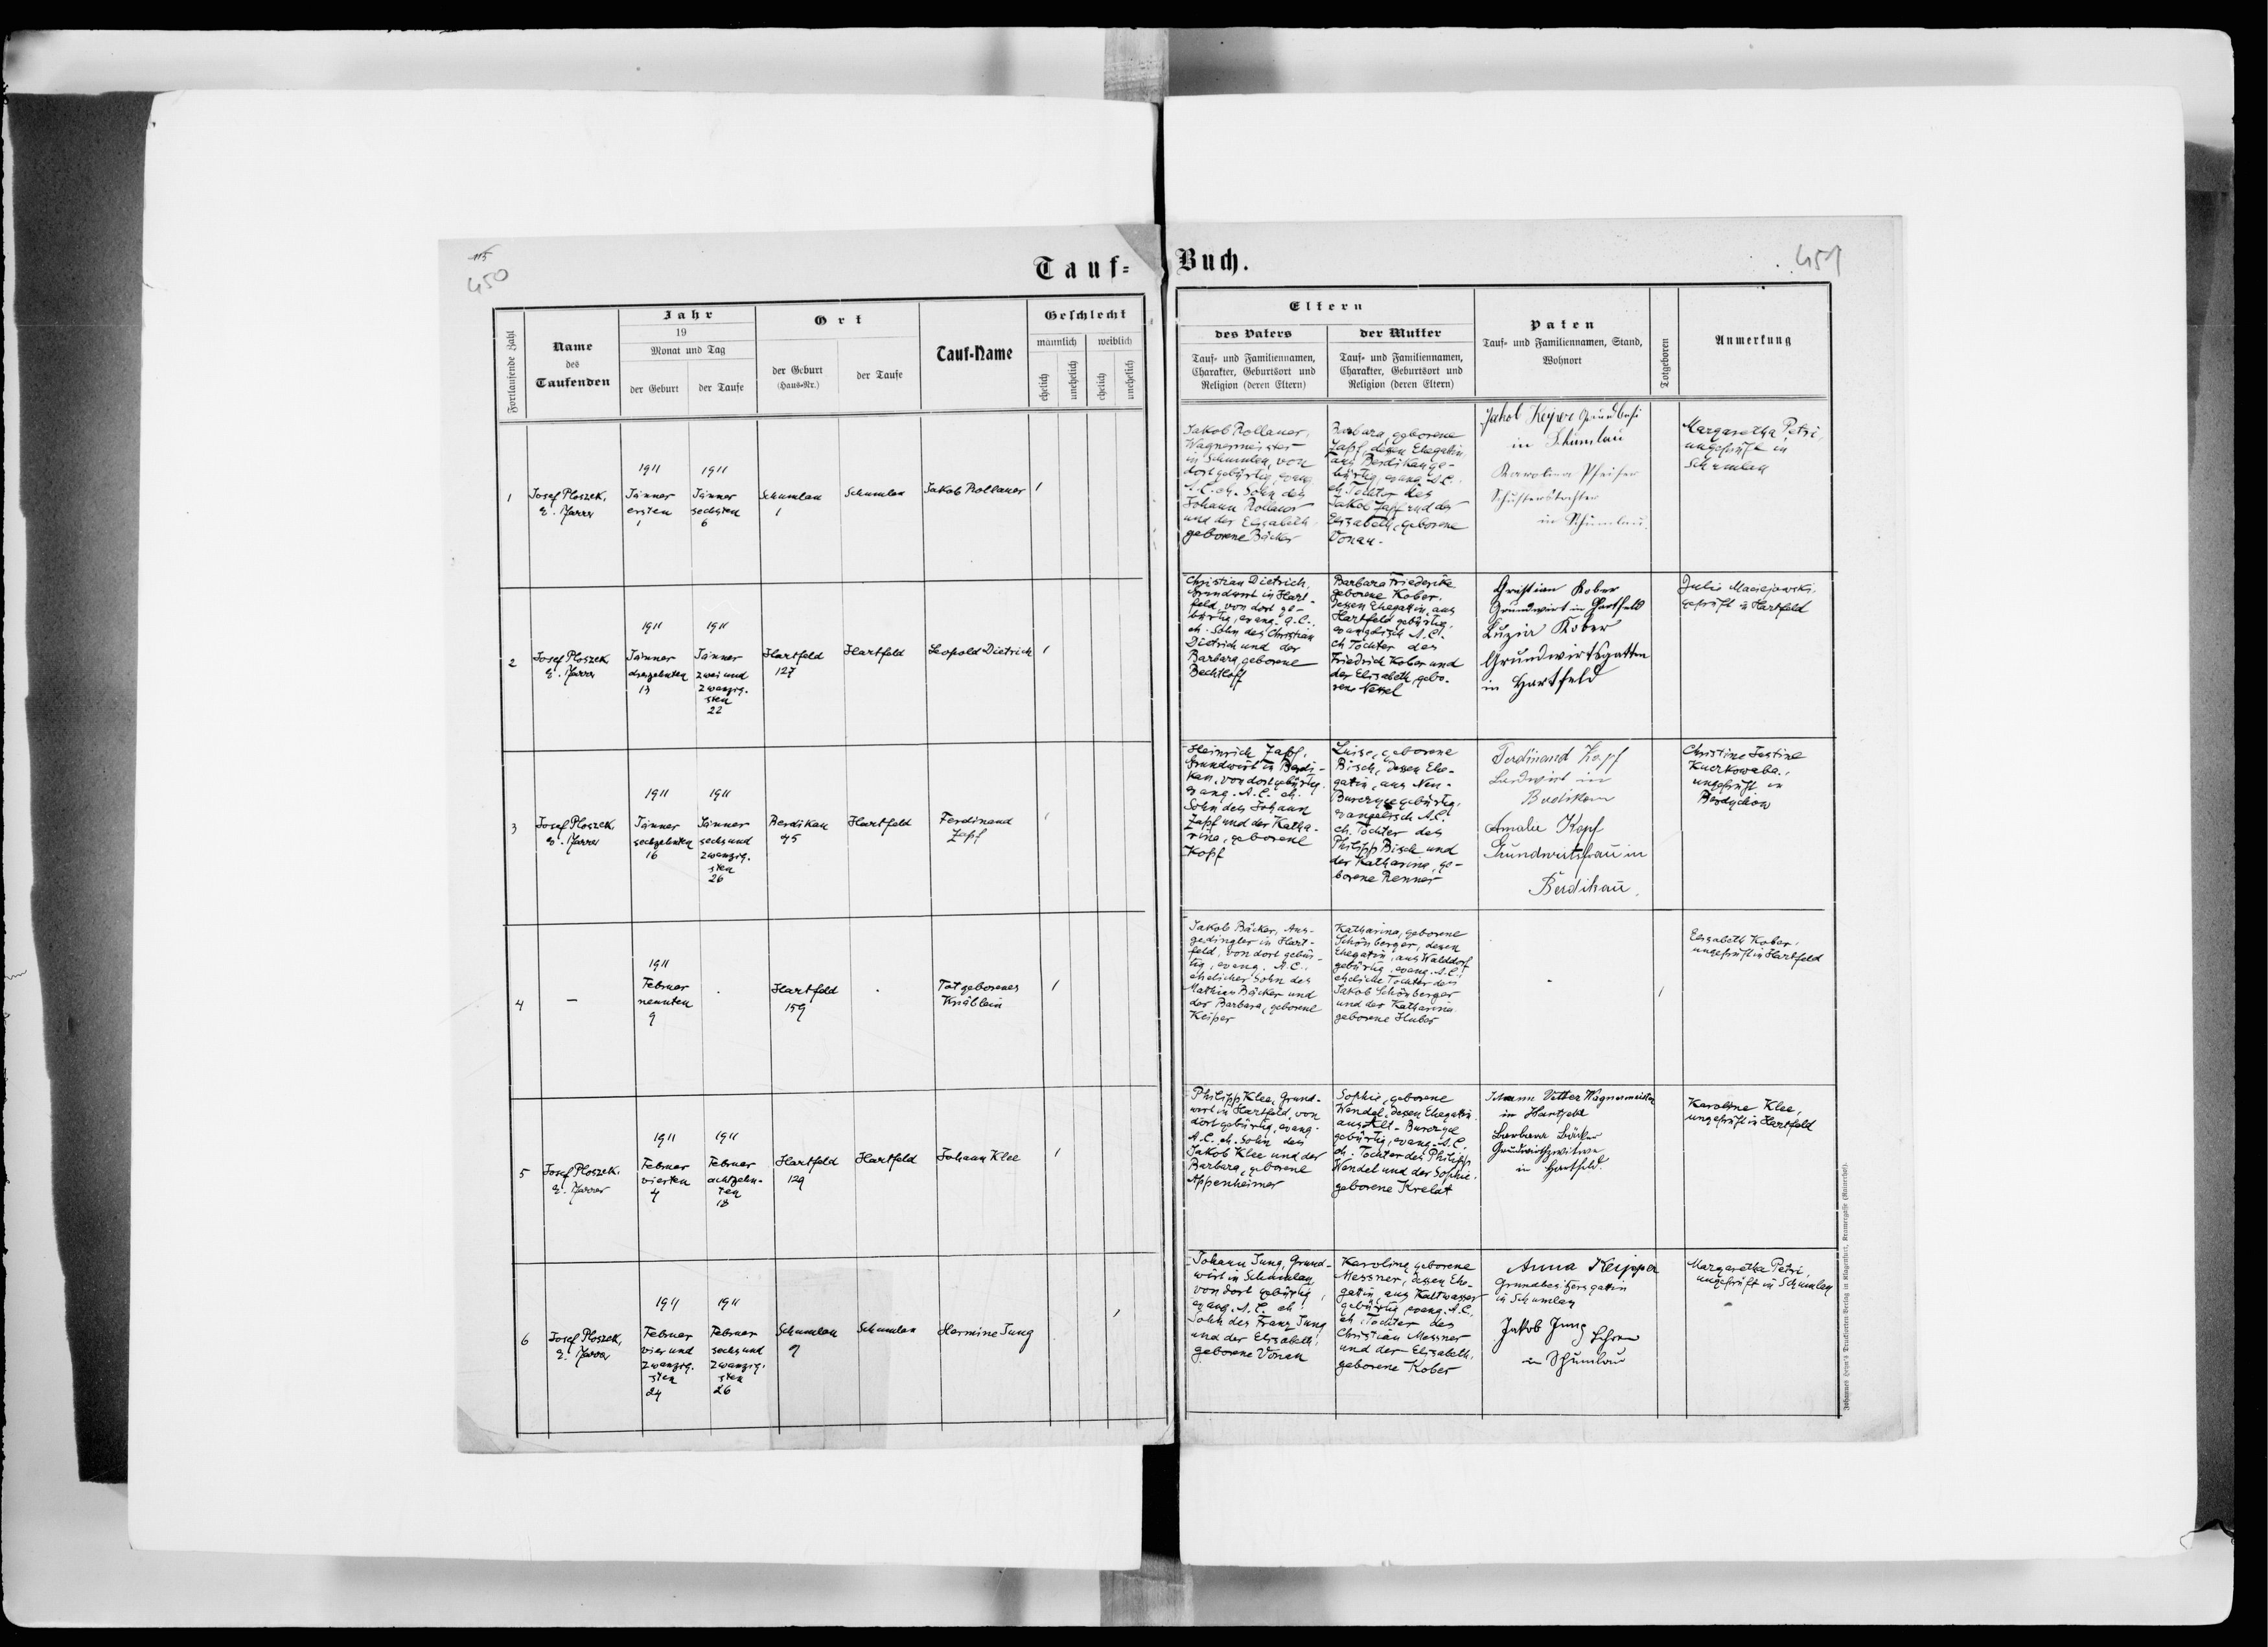 115
450
Tauf=
Buch.
451
Fortlaufende Zahl
Name
des
Taufenden
Jahr
19
Monat und Tag
der Geburt
der Taufe
Ort
der Geburt
(Haus-Nr.)
der Taufe
Tauf-Name
Geschlecht
männlich
weiblich
ehelich
unehelich
ehelich
unehelich
Eltern
des Vaters
Tauf- und Familiennamen,
Charakter, Geburtsort und
Religion (deren Eltern)
der Mutter
Tauf- und Familiennamen,
Charakter, Geburtsort und
Religion (deren Eltern)
Paten
Tauf- und Familiennamen, Stand,
Wohnort
Totgeboren
Anmerkung
1
Josef Ploszek,
e. Pfarrer
1911
Jänner
ersten
1
1911
Jänner
sechsten
6
Schumlau
1
Schumlau
Jakob Rollauer
1
Jakob Rollauer,
Wagnermeister
in Schumlau, von
dort gebürtig, evang.
A.C. eh. Sohn des
Johann Rollauer
und der Elisabeth
geborene Bäcker
Barbara, geborene
Zapf, dessen Ehegatin
aus Berdikau ge-
bürtig, evang. A.C.
eh. Tochter des
Jakob Zapf und der
Elisabeth, geborene
Vonau.
Jakob
in Schumlau
Karolina Pfeifer
Schusterstochter
in Schumlau.
Margaretha Petri,
ungeprüft in
Schumlau
2
Josef Ploszek
e. Pfarrer
1911
Jänner
dreizehnten
13
1911
Jänner
zwei und
zwanzig-
sten
22
Hartfeld
127
Hartfeld
Leopold Dietrich
1
Christian Dietrich,
Grundwirt in Hart-
feld, von dort ge-
bürtig, evang. A.C.,
eh. Sohn des Christian
Dietrich und der
Barbara, geborene
Bechtloff
Barbara Friederike
geborene Kober,
dessen Ehegatin, aus
Hartfeld gebürtig,
evangelisch A.C.
eh Tochter des
Friedrich Kober und
der Elisabeth, gebo-
rene Nessel
Christian Kober
Grundwirt in Hartfeld
Luzia Kober
Grundwirtsgattin
in Hartfeld
Julie Maciejowski,
geprüft in Hartfeld
3
Josef Ploszek
e. Pfarrer
1911
Jänner
sechzehnten
16
1911
Jänner
sechs und
zwanzig-
sten
26
Berdikau
45
Hartfeld
Ferdinand
Zapf
1
Heinrich Zapf,
Grundwirt in Berdi-
kau, von dort gebürtig,
evang. A.C. eh.
Sohn des Johann
Zapf und der Katha-
rina, geborene
Kopf
Luise, geborene
Bisch, dessen Ehe-
gatin, aus Neu-
Burczyce gebürtig,
evangelisch A.C.
eh. Tochter des
Philipp Bisch und
der Katharina, ge-
borene Renner
Ferdinand Kopf
Landwirt in
Berdikau
Amalie Kopf
Grundwirtsfrau in
Berdikau.
Christine
ungeprüft in
Berdychow
4
—
1911
Februar
neunten
9
.
Hartfeld
159
.
Totgeborenes
Knäblein
1
Jakob Bäcker, Aus-
gedingler in Hart-
feld, von dort gebür-
tig, evang. A.C.,
ehelicher Sohn des
Mathias Bäcker und
der Barbara, geborene
Keiper
Katharina, geborene
Schönberger, dessen
Ehegatin, aus Walddorf
gebürtig, evang. A.C.,
eheliche Tochter des
Jakob Schönberger
und der Katharina
geborene Huber
.
1
Elisabeth Kober,
ungeprüft in Hartfeld
5
Josef Ploszek,
e. Pfarrer
1911
Februar
vierten
4
1911
Februar
achtzehn-
ten
18
Hartfeld
129
Hartfeld
Johann Klee
1
Philipp Klee, Grund-
wirt in Hartfeld, von
dort gebürtig, evang.
A.C. eh. Sohn des
Jakob Klee und der
Barbara, geborene
Appenheimer
Sophie, geborene
Wendel, dessen Ehegatin
aus Alt-Burczyce
gebürtig, evang. A.C.
eh. Tochter des Philipp
Wendel und der Sophie,
geborene Krelat
Johann Vetter Wagnermeister
in Hartfeld
Barbara Bäcker
Grundwirtswitwe
in Hartfeld.
Karoline Klee,
ungeprüft in Hartfeld
6
Josef Ploszek,
e. Pfarrer
1911
Februar
vier und
zwanzig-
sten
24
1911
Februar
sechs und
zwanzig-
sten
26
Schumlau
9
Schumlau
Hermine Jung
1
Johann Jung, Grund-
wirt in Schumlau,
von dort gebürtig,
evang. A.C. eh
Sohn des Franz Jung
und der Elisabeth,
geborene Vonau
Karolina geborene
Messner, dessen Ehe-
gatin, aus Kaltwasser
gebürtig, evang. A.C.
eh. Tochter des
Christian Messner
und der Elisabeth,
geborene Kober
Anna Keipper
Grundbesitzersgattin
in Schumlau
Jakob Jung
in Schumlau
Margaretha Petri,
ungeprüft in Schumlau
Johannes Heyn's Druckforten-Verlag in Klagenfurt, Kramergasse (Rainerhof).